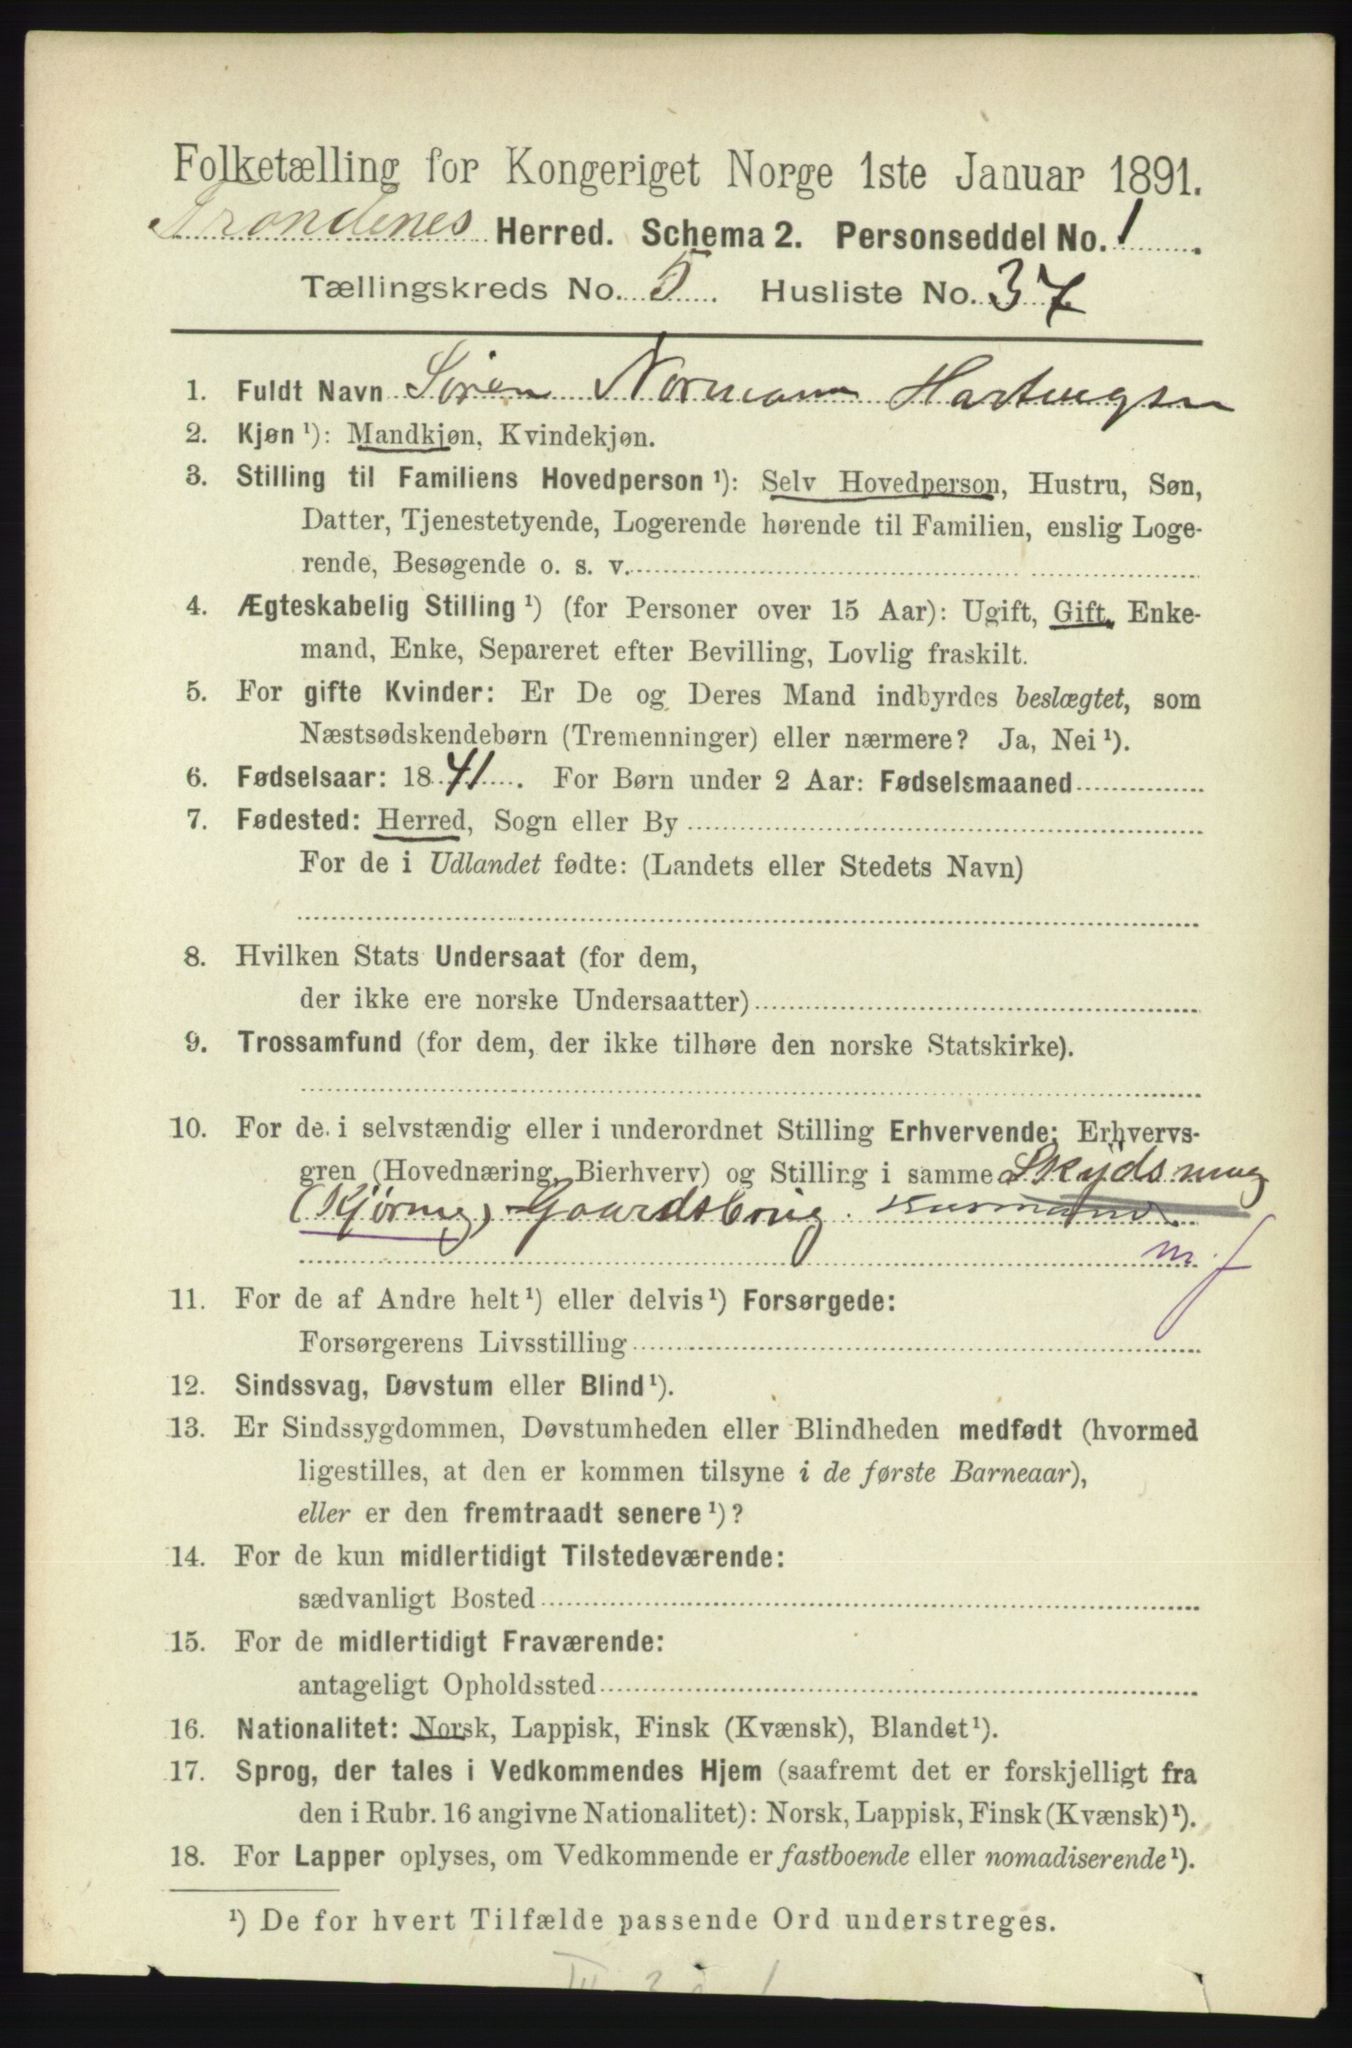 Folketælling for Kongeriget Norge 1ste Januar 1891.
Trondenes Herred. Schema 2. Personseddel No. 1
Tællingskreds No. 5. Husliste No. 37
1. Fuldt Navn Søren Normann Hartvigsen
2. Kjøn ¹): Mandkjøn, Kvindekjøn.
3. Stilling til Familiens Hovedperson ¹): Selv Hovedperson, Hustru, Søn,
Datter, Tjenestetyende, Logerende hørende til Familien, enslig Loge-
rende, Besøgende o. s. v.
4. Ægteskabelig Stilling ¹) (for Personer over 15 Aar): Ugift, Gift, Enke-
mand, Enke, Separeret efter Bevilling, Lovlig fraskilt.
5. For gifte Kvinder: Er De og Deres Mand indbyrdes beslægtet, som
Næstsødskendebørn (Tremenninger) eller nærmere? Ja, Nei ¹).
6. Fødselsaar: 1841. For Børn under 2 Aar: Fødselsmaaned
7. Fødested: Herred, Sogn eller By
For de i Udlandet fødte: (Landets eller Stedets Navn)
8. Hvilken Stats Undersaat (for dem,
der ikke ere norske Undersaatter)
9. Trossamfund (for dem, der ikke tilhøre den norske Statskirke).
10. For de i selvstændig eller i underordnet Stilling Erhvervende: Erhvervs-
gren (Hovednæring, Bierhverv) og Stilling i samme Skyds
(Kjøring) Gaardsbrug.
m.f
11. For de af Andre helt ¹) eller delvis ¹) Forsørgede:
Forsørgerens Livsstilling
12. Sindssvag, Døvstum eller Blind ¹).
13. Er Sindssygdommen, Døvstumheden eller Blindheden medfødt (hvormed
ligestilles, at den er kommen tilsyne i de første Barneaar),
eller er den fremtraadt senere ¹)?
14. For de kun midlertidigt Tilstedeværende:
sædvanligt Bosted
15. For de midlertidigt Fraværende:
antageligt Opholdssted
16. Nationalitet: Norsk, Lappisk, Finsk (Kvænsk), Blandet ¹).
17. Sprog, der tales i Vedkommendes Hjem (saafremt det er forskjelligt fra
den i Rubr. 16 angivne Nationalitet): Norsk, Lappisk, Finsk (Kvænsk) ¹).
18. For Lapper oplyses, om Vedkommende er fastboende eller nomadiserende ¹).
¹) De for hvert Tilfælde passende Ord understreges.